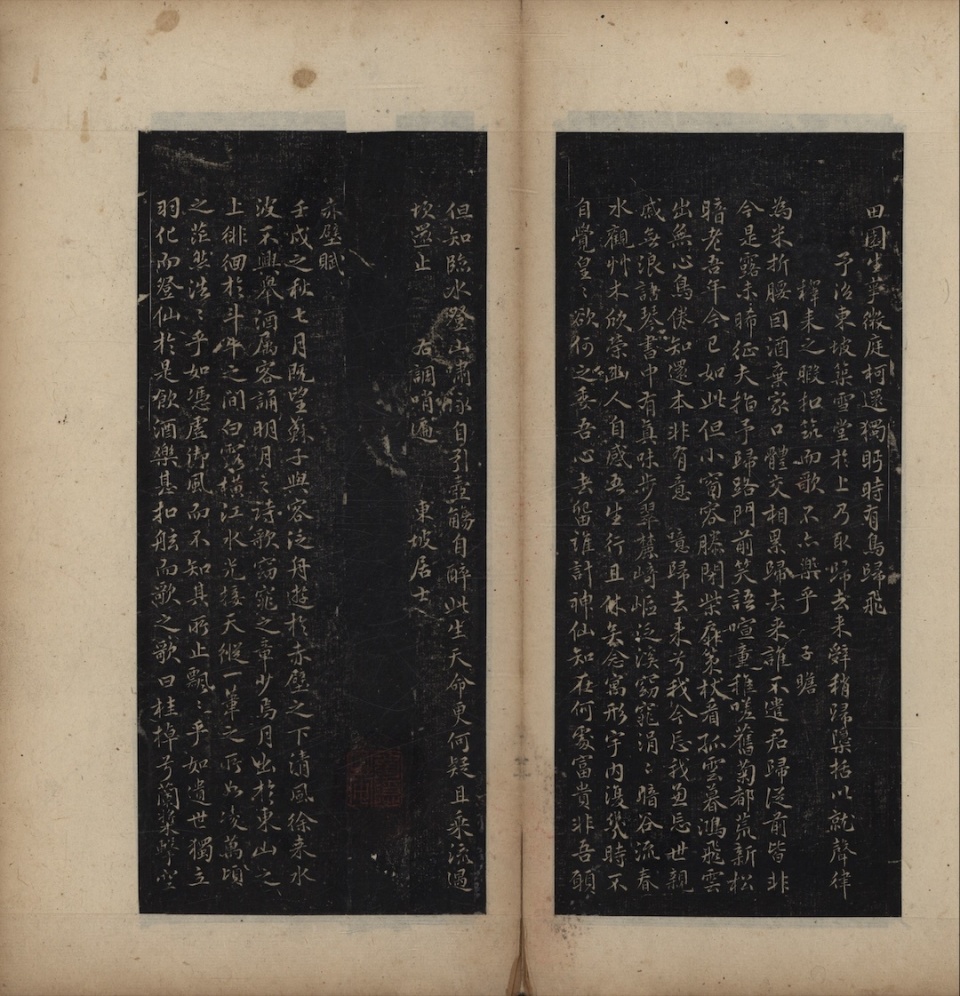 田園生事微庭柯還獨眄時有鳥歸飛
予治東坡築雪堂於上乃取歸去来辭稍歸檃括以就聲律
釋耒之暇扣筑而歌不亦樂乎　子瞻
為米折腰因酒棄家口體交相累歸去来誰不遣君歸従前皆非
今是露未晞征夫指予歸路門前笑語喧童稚嗟舊菊都荒新松
暗老吾年今已如此但小窗容膝閉柴扉策杖看孤雲暮鴻飛雲
出無心鳥倦知還本非有意　噫歸去来兮我今忘我兼忘世親
戚無浪語琴書中有真味步翠麓崎嶇泛溪窈窕涓〻暗谷流春
水觀艸木欣榮幽人自感吾生行且休矣念寓形宇内復幾時不
自覺皇〻欲何之委吾心去留誰計神仙知在何處富貴非吾願
但知臨水登山嘯詠自引壺觴自醉此生天命更何疑且乘流遇
坎還止　右調哨遍　東坡居士
赤壁賦
壬戌之秋七月既望蘇子與客泛舟遊於赤壁之下清風徐来水
波不興舉酒属客誦明月之詩歌窈窕之章少焉月出於東山之
上徘徊於斗牛之間白露橫江水光接天縱一葦之所如凌萬頃
之茫然浩〻乎如憑虛御風而不知其所止飄〻乎如遺世獨立
羽化而登仙於是飲酒樂甚扣舷而歌之歌曰桂棹兮蘭槳擊空